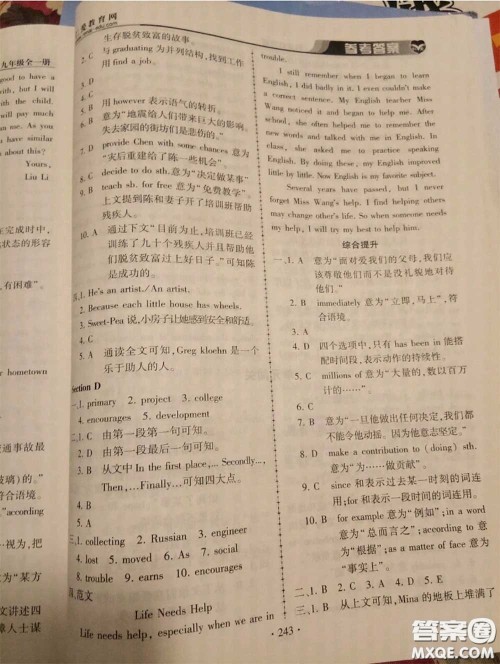 爱教育网
生存脱贫致富的故事。
2. C 与 graduating 为并列结构,找到工作
用 find a job。
3. C
4. B
5. B 用 however 表示语气的转折。
6. A 意为“地震给人们带来巨大的影响。
失去家园的街坊们是悲伤的。”
7. D provide Chen with some chances 意为
“灾后重建给了陈一些机会”。
8. C decide to do sth. 意为“决定做某事”。
9. B teach sb. for free 意为“免费教某人”。
上文提到陈和妻子开了培训班帮助
残疾人。
10. A 通过下文“目前为止,培训班已经
训练了九十个残疾人并且帮助他
们脱贫致富过上好日子。”可知陈
是成功的。
三、1. He's an artist./An artist.
2. Because each little house has wheels.
3. Sweet-Pea 说,小房子让她感到安全和舒适。
4. C
5. A 通读全文可知,Greg kloehn 是一个
乐于助人的人。
Section D
一、1. primary 2. project 3. college
4. encourages 5. development
二、1. C 由第一段第一句可知。
2. D 由第一段最后一句可知。
3. B 从文中 In the first place, ... Secondly...
Then, ...Finally...可知四大点。
4. B
5. A
三、1. collecting 2. Russian 3. engineer
4. lost 5. moved 6. As 7. social
8. trouble 9. earns 10. encourages
四、范文
Life Needs Help
Life needs help, especially when we are in
trouble.
I still remember when I began to learn
English, I did badly in it. I even couldn't make
a correct sentence. My English teacher Miss
Wang noticed it and began to help me. After
school, she often helped me to remember the
new words and talked with me in English. In
class, she asked me to practice speaking
English. By doing these, my English improved
little by little. Now English is my favorite subject.
Several years have passed, but I never
forget Miss Wang's help. I find helping others
may change other's life. So when someone needs
my help, I will try my best to help him.
综合提升
一、1. A 意为“面对爱我们的父母,我们应
该尊敬他们而不是没礼貌地对待
他们。”
2. B immediately 意为“立即,马上”,符
合语境。
3. A
4. D 四个选项中,只有 has been in 能搭
配时间段,表示动作的持续性。
5. C millions of 意为“大量的,数以百万
计的……”
6. C
7. B 意为“一旦他做出任何决定,我们都
不能令他动摇。因为他意志坚定。”
8. D make a contribution to (doing) sth.
意为“为……做贡献”。
9. C since 和表示过去某一时刻的词连
用;for 和表示一段时间的词连用。
10. B for example 意为“例如”;in a word
意为“总而言之”;according to 意
为“根据”;as a matter of face 意为
“事实上”。
二、1. B 2. C 3. A 4. D 5. E
三、1. B 从上文可知,Mina 的地板上堆满了
· 243 ·
九年级全一册
I have to
with the
the child.
em in this
ve similar
about this?
Yours,
Liu Li
在完成时中,
状态的形容
有困难”。
r hometown
通事故最
璃)的。”
“according
符合语境。
…视为,把
为“某方
文讲述四
障人士谋
答案圈
MXQE.COM